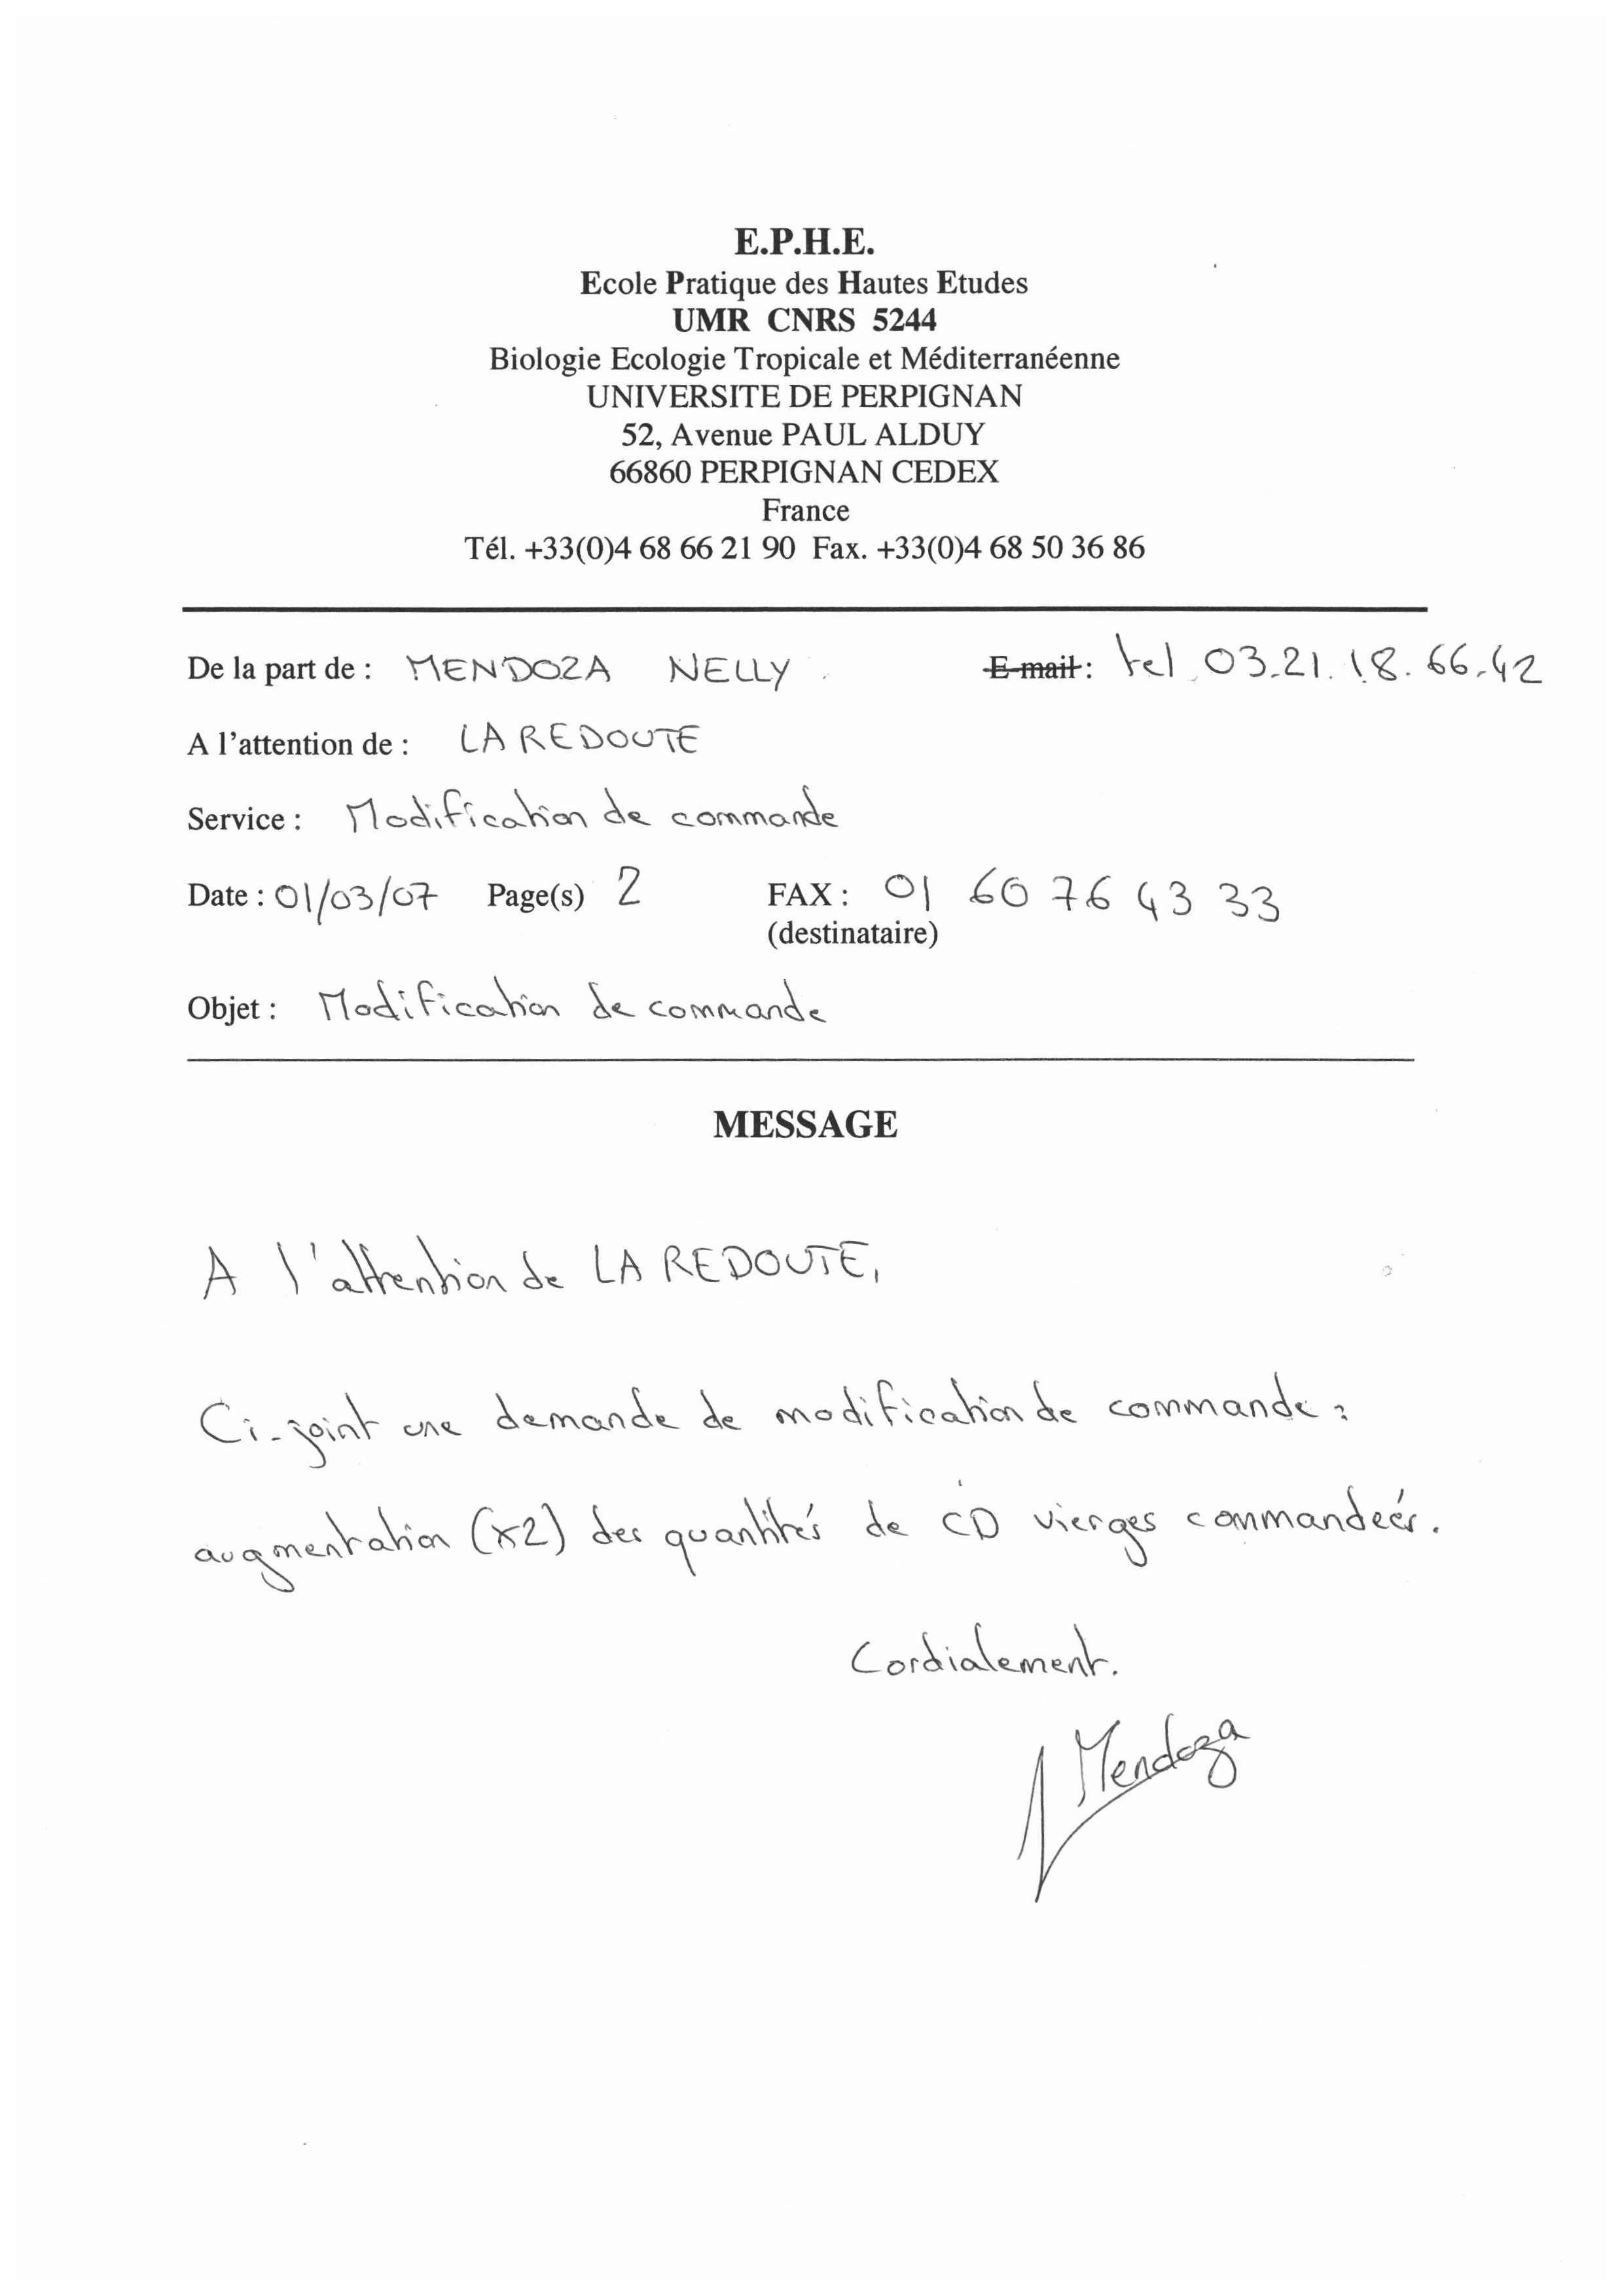 E.P.H.E.
Ecole Pratique des Hautes Etudes
UMR CNRS 5244
Biologie Ecologie Tropicale et Méditerranéenne
UNIVERSITE DE PERPIGNAN
52, Avenue PAUL ALDUY
66860 PERPIGNAN CEDEX
France
Tél. +33(0)4 68 66 21 90 Fax. +33(0)4 68 50 36 86
De la part de : MENDOZA NELLY E-mail : tel 03.21.18.66.42
A l'attention de : LA REDOUTE
Service : Modification de commande
Date : 01/03/07 Page(s) 2 FAX : 01 60 76 43 33
(destinataire)
Objet : Modification de commande
MESSAGE
A l'attention de LA REDOUTE,
Ci-joint une demande de modification de commande :
augmentation (x2) des quantités de CD vierges commandeés.
Cordialement.
Mendoza